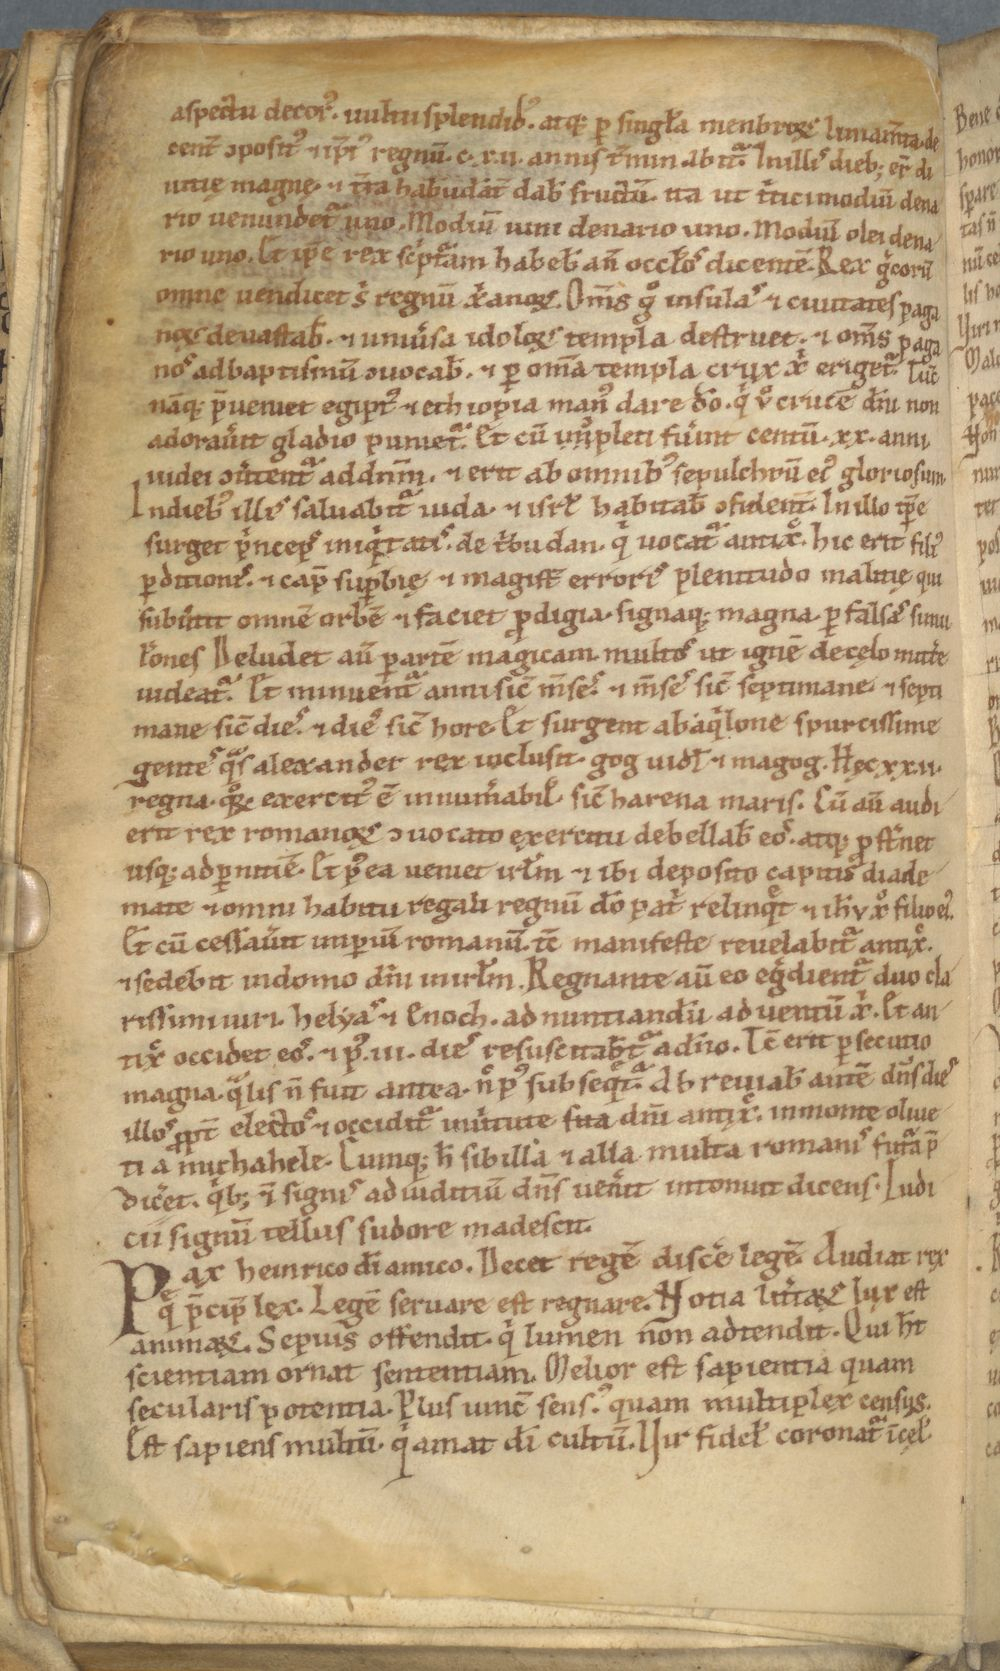 aspectu decorꝰ. uultu splendidꝰ. atq; ꝑ singl̄a menbroꝝ liniam̄ta de
cent̄ ꝯpositꝰ ⁊ ip̄iꝰ regnū. c. x.ii. annis t̄min abit᷑. In illis dieb; er̄t di
uitię magnę. ⁊ t̄ra habūdāt̄ dab̄ fructū. ita ut t̄tici modiū dena
rio uenundet᷑ uno. Modiū uini denario uno. Modiū olei dena
rio uno. Et ip̄e rex sc̄ptˉam habeb̄ an̄ occl̄os dicentē. Rex gͥcorū
omne uendicet sͥ regnū xͥanoꝝ. Om̄s gͦ insulas ⁊ ciuitates paga
noꝝ deuastab̄. ⁊ uniūsa idoloꝝ templa destruet. ⁊ om̄s paga
nos ad baptismū ꝯuocab̄. ⁊ ꝑ om̄a templa crux xͥ eriget᷑. Tūc
nāq; p̄ueniet egiptꝰ ⁊ ethiopia manꝰ dare dō. qͥ uͦ crucē dn̄i non
adorauīt gladio puniet᷑. Et cū īpleti fuīnt centū. xx. anni
iudei ꝯūtent᷑ ad dn̄m. ⁊ erit ab omnibꝰ sepulchrū eiꝰ gloriosum.
In diebꝰ illis saluabit᷑ iuda. ⁊ isrl̄ habitab̄ ꝯfident̄. In illo tp̄e
surget pͥnceps iniqͥtatis. de tͥbu dan. qͥ uocat᷑ antixͦ. hic erit filiꝰ
ꝑditionis. ⁊ cap̄ suꝑbię ⁊ magist̄ erroris plenitudo malitię qui
subūtit omnē orbē ⁊ faciet ꝓdigia. signaq; magna. ꝑ falsas simu
l̄ones Deludet aū ꝑ artē magicam. multos ut ignē de cęlo mittē
uideat᷑. Et minuent᷑ anni sic̄ m̄ses. ⁊ m̄ses sic̄ septimane. ⁊ septi
mane sic̄ dies. ⁊ dies sic̄ hore. Et surgent ab aqͥlone spurcissime
gentes qͣs alexander rex inclusit. gog uidl̄ ⁊ magog. Hęc xx.ii.
regna. qͦꝝ exercitꝰ ē innum̄abil̄. sic̄ harena maris. Cū aū audi
erit rex romanoꝝ ꝯuocato exercitu debellab̄ eos. atq; ꝓst̄net
usq; ad ꝑnitiē. Et p̄ea ueniet irl̄m ⁊ ibi deposito capitis diade
mate ⁊ omni habitu regali regnū dō patͥ relinqͥt ⁊ ih̄u xͦ filio eiꝰ.
Et cū cessauīt impiū romanū. tc̄ manifeste reuelabit᷑ antixͦ.
⁊ sedebit in domo dn̄i in irl̄m. Regnante aū eo egͥdient᷑ duo cla
rissimi uiri. helyas ⁊ Enoch. ad nuntiandū aduentū xͥ. Et an
tixͦ occidet eos. ⁊ pꝰ .iii. dies resuscitab̄t᷑ a dn̄o. Tc̄ erit ꝑsecutio
magna. qͣlis n̄ fuit antea. nͦ pꝰ subseqͥt᷑. Ab reuiab̄ autē dn̄s dies
illos ꝓpt̄ electos ⁊ occidit᷑ uir̄tute sua dn̄i antixͦ. in monte oliue
ti a michahele. Cumq; h̄ sibilla ⁊ alia multa romanis futͣa p̄
dicet̄. qͥb; ī signis ad iuditiū dn̄s uenīt intonuit dicens. Iudi
cii signū tellus sudore madescit.
Pax heinrico di amico. Decet regē discē legē. Audiat rex
qͥ p̄cip̄ lex. Legē seruare est regnare. Notia litͥaꝝ lux est
animaꝝ. Sępius offendit. qͥ lumen non adtendit. Qui h̄t
scientiam ornat sententiam. Melior est sapientia quam
secularis potentia. Plus uincͭ sensꝰ. quam multiplex census.
Est sapiens multū. qͥ amat di cultū. Uir fidel̄ coronat᷑ ī cęl̄